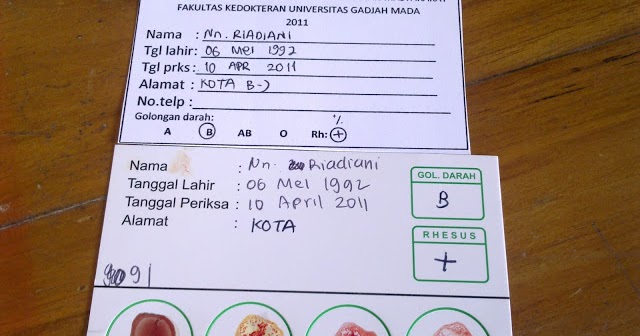 FAKULTAS KEDOKTERAN UNIVERSITAS GADJAH MADA
2011
Nama : Nn. RIADIANI
Tgl lahir: 06 MEI 1992
Tgl prks: 10 APR 2011
Alamat : KOTA B-)
No.telp :
Golongan darah:
A B AB O Rh: +
Nama : Nn. Riadiani
Tanggal Lahir : 06 Mei 1992
Tanggal Periksa : 10 April 2011
Alamat : KOTA
GOL. DARAH
B
RHESUS
+
91